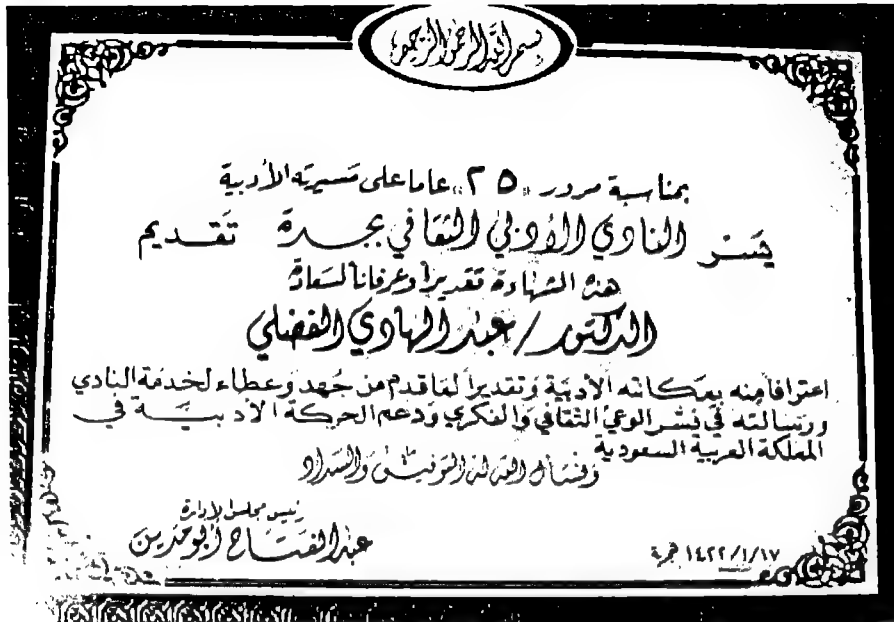 بسم الله الرحمن الرحيم
بمناسبة مرور «٢٥» عاما على مسيرته الأدبية
يسر النادي الأدبي الثقافي بجدة تقديم
هذه الشهادة تقديراً وعرفاناً لسعادة
الدكتور / عبد الهادي الفضلي
اعترافاً منه بمكانته الأدبية وتقديراً لما قدم من جهد وعطاء لخدمة النادي
ورسالته في نشر الوعي الثقافي والفكري ودعم الحركة الأدبية في
المملكة العربية السعودية
ونسأل الله له التوفيق والسداد
رئيس مجلس الإدارة
عبد الفتاح أبو مدين
١٤٢٢/١/١٧ هجرية